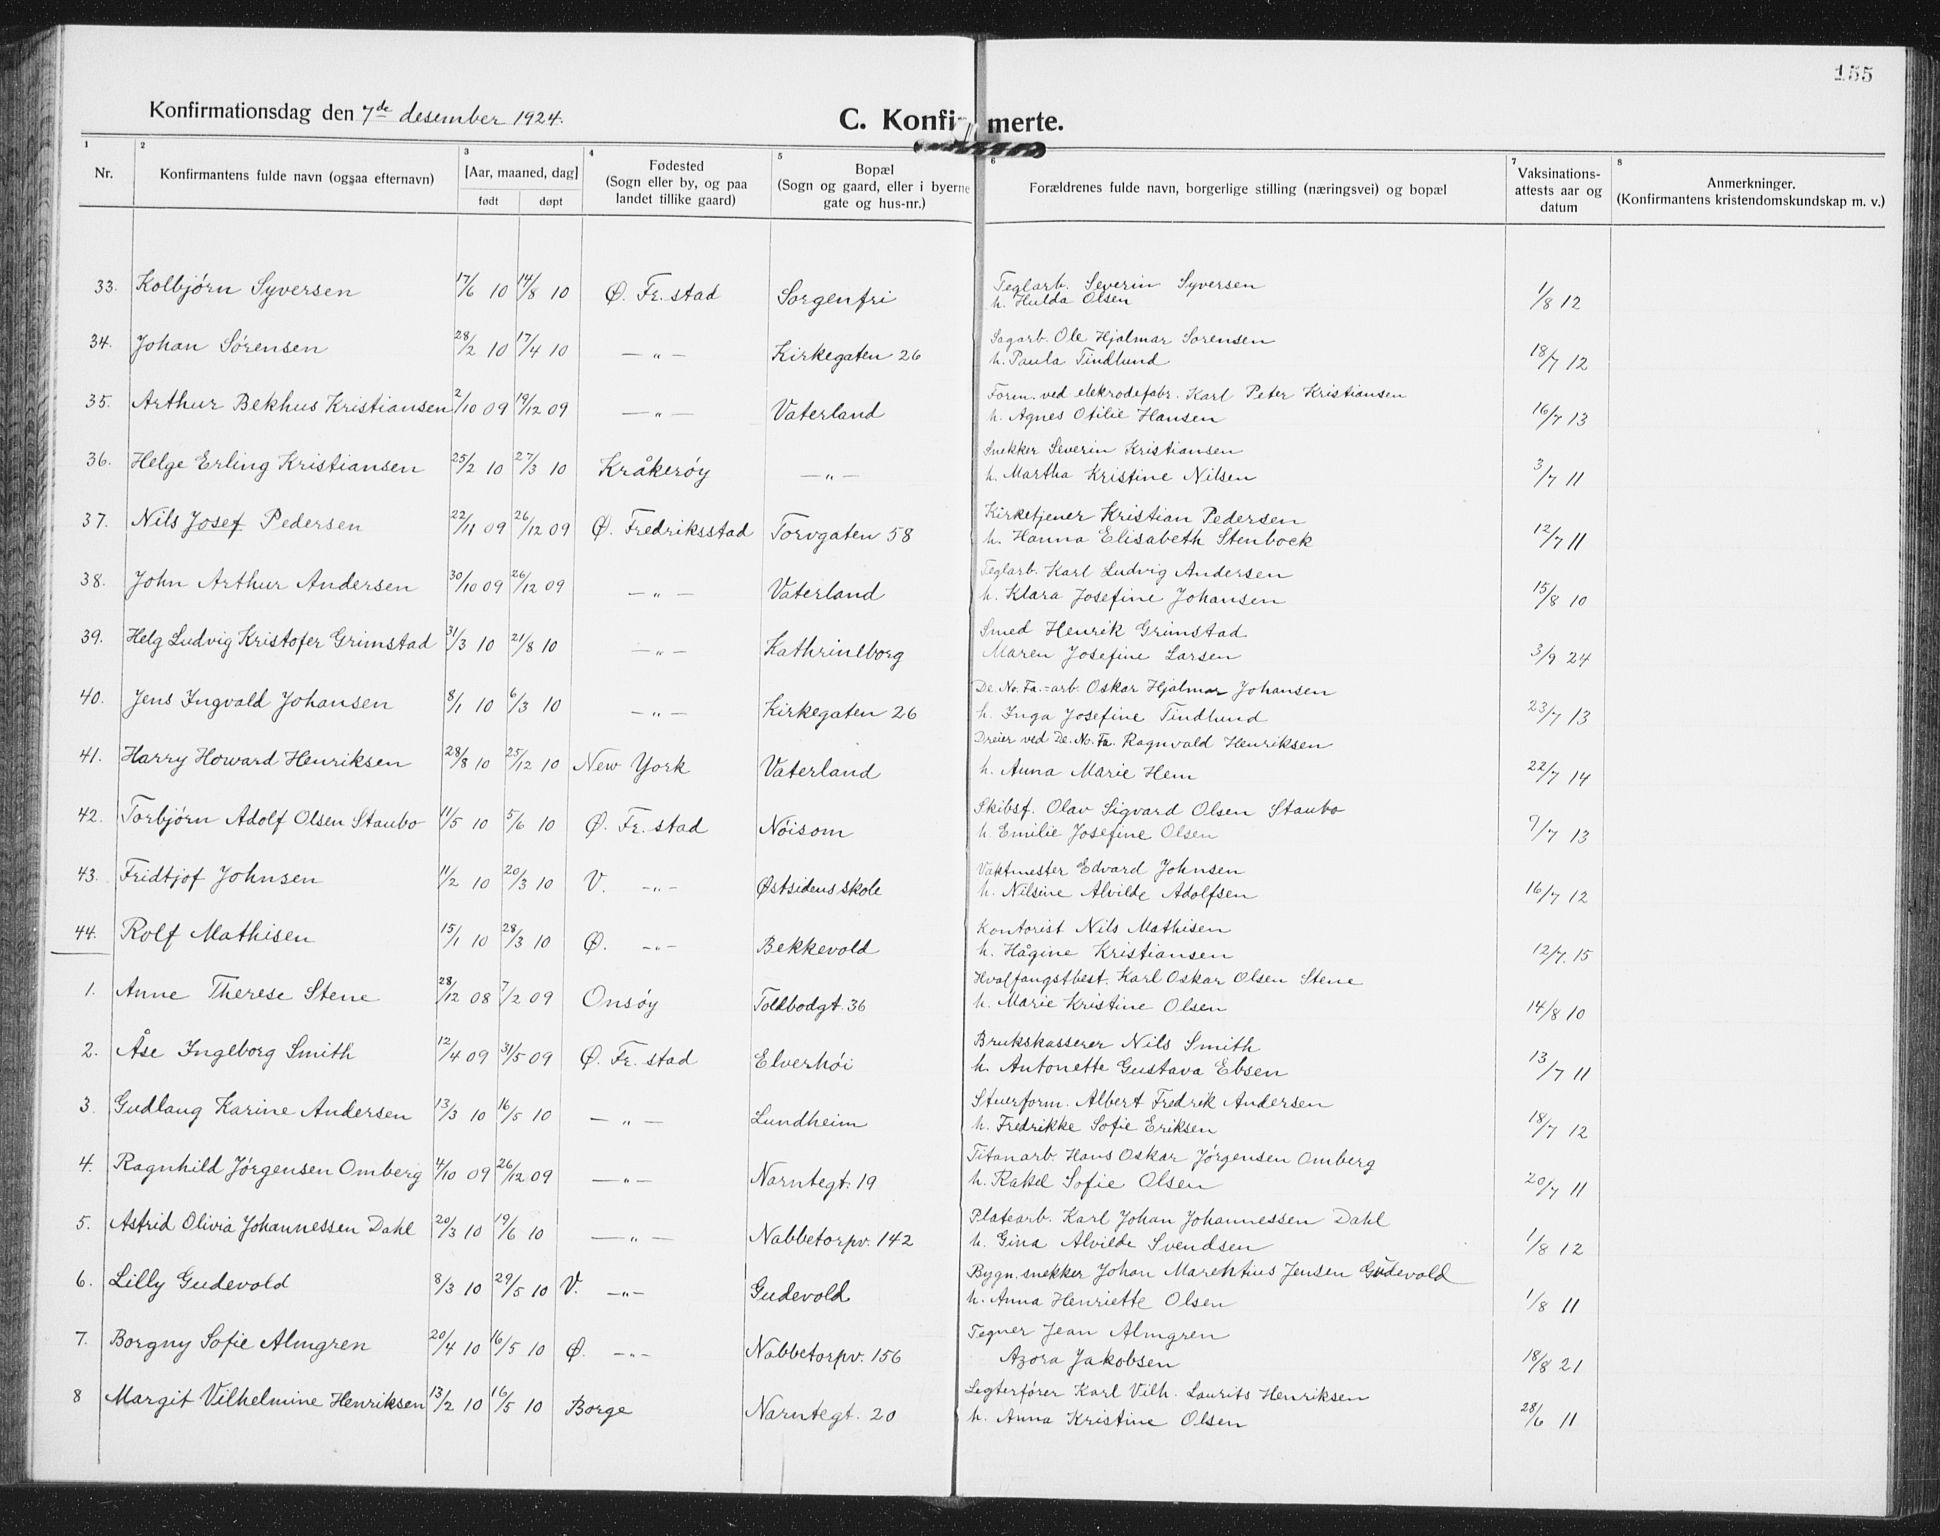 155
Konfirmationsdag den 7de desember 1924.
C. Konfirmerte.
1 2 3 4 5 6 7 8
Nr. Konfirmantens fulde navn (ogsaa efternavn) [Aar, maaned, dag] født døpt Fødested (Sogn eller by, og paa landet tillike gaard) Bopæl (Sogn og gaard, eller i byerne gate og hus-nr.) Forældrenes fulde navn, borgerlige stilling (næringsvei) og bopæl Vaksinationsattests aar og datum Anmerkninger. (Konfirmantens kristendomskundskap m. v.)
33. Kolbjørn Syversen 17/6 10 14/8 10 Ø. Fr. stad Sorgenfri Teglarb. Severin Syversen 1/8 12
h. Hulda Olsen
34. Johan Sørensen 28/2 10 17/4 10 —„— Kirkegaten 26 Sagarb. Ole Hjalmar Sørensen 18/7 12
h. Paula Tindlund
35. Arthur Bekhus Kristiansen 2/10 09 19/12 09 —„— Vaterland Form. ved elekrodefabr. Karl Peter Kristiansen 16/7 13
h. Agnes Otilie Hansen
36. Helge Erling Kristiansen 25/2 10 27/3 10 Kråkerøy —„— Snekker Severin Kristiansen 3/7 11
h. Martha Kristine Nilsen
37. Nils Josef Pedersen 22/11 09 26/12 09 Ø. Fredriksstad Torvgaten 58 Kirketjener Kristian Pedersen 12/7 11
h. Hanna Elisabeth Stenbock
38. John Arthur Andersen 30/10 09 26/12 09 —„— Vaterland Teglarb. Karl Ludvig Andersen 15/8 10
h. Klara Josefine Johansen
39. Helg Ludvig Kristofer Grimstad 31/3 10 21/8 10 —„— Kathrineborg Smed Henrik Grimstad 3/9 24
Maren Josefine Larsen
40. Jens Ingvald Johansen 8/1 10 6/3 10 —„— Kirkegaten 26 De. No. Fa.=arb. Oskar Hjalmar Johansen 23/7 13
h. Inga Josefine Tindlund
41. Harry Howard Henriksen 28/8 10 25/12 10 New York Vaterland Dreier ved De. No. Fa. Ragnvald Henriksen 22/7 14
h. Anna Marie Hem
42. Torbjørn Adolf Olsen Staubo 11/5 10 5/6 10 Ø. Fr. stad Nøisom Skibsf. Olav Sigvard Olsen Staubo 9/7 13
h. Emilie Josefine Olsen
43. Fridtjof Johnsen 11/2 10 20/3 10 V. —„— Østsidens skole Vaktmester Edvard Johnsen 16/7 12
h. Nilsine Alvilde Adolfsen
44. Rolf Mathisen 15/1 10 28/3 10 Ø. —„— Bekkevold Kontorist Nils Mathisen 12/7. 15
h. Hågine Kristiansen
1. Anne Therese Stene 28/12 08 7/2 09 Onsøy Toldbodgt. 36 Hvalfangstbest. Karl Oskar Olsen Stene 14/8 10
h. Marie Kristine Olsen
2. Åse Ingeborg Smith 12/4 09 31/5 09 Ø. Fr. stad Elverhøi Brukskasserer Nils Smith 13/7 11
h. Antonette Gustava Ebsen
3. Gudlaug Karine Andersen 13/3 10 16/5 10 —„— Lundheim Stuerform. Albert Fredrik Andersen 18/7 12
h. Fredrikke Sofie Eriksen
4. Ragnhild Jørgensen Omberg 4/10 09 26/12 09 —„— Narntegt. 19 Titanarb. Hans Oskar Jørgensen Omberg 20/7 11
h. Rakel Sofie Olsen
5. Astrid Olivia Johannessen Dahl 20/3 10 19/6 10 —„— Nabbetorpv. 142 Platearb. Karl Johan Johannessen Dahl 1/8 12
h. Gina Alvilde Svendsen
6. Lilly Gudevold 8/3 10 29/5 10 V. —„— Gudevold Bygn. snekker Johan Marentius Jensen Gudevold 1/8 11
h. Anna Henriette Olsen
7. Borgny Sofie Almgren 20/4 10 16/5 10 Ø. —„— Nabbetorpv. 156 Tegner Jean Almgren 18/8 21
Azora Jakobsen
8 Margit Vilhelmine Henriksen 13/2 10 16/5 10 Borge Narntegt. 20 Legterfører Karl Vilh. Laurits Henriksen 28/6 11
h. Anna Kristine Olsen